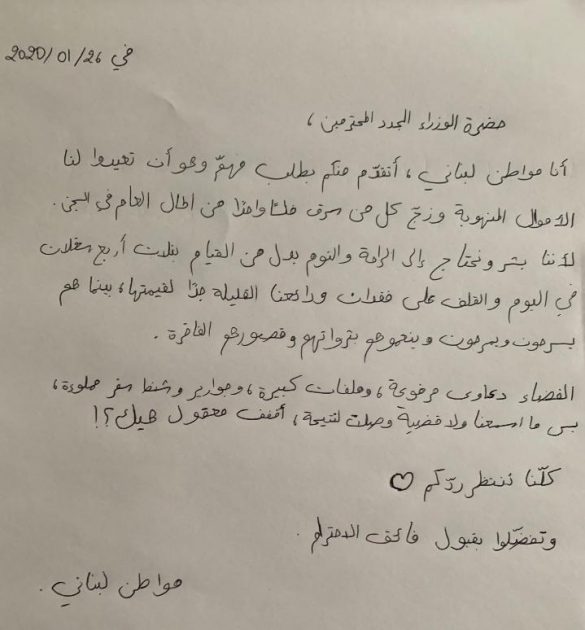 في 2020/01/26
حضرة الوزراء الجدد المحترمين ،
أنا مواطن لبناني ، أتقدّم منكم بطلب مهمّ وهو أن تعيدوا لنا
الاموال المنهوبة وزجّ كل من سرق فلسًا واحدًا من المال العام في السجن .
لأننا بشر ونحتاج إلى الراحة والنوم بدل من القيام بثلاث أربع شغلات
في اليوم والقلق على فقدان ودائعنا القليلة جدًا لقيمتها، بينما هم
يسرحون ويمرحون وينعمو هو بثرواتهم وقصورهم الفاخرة .
القضاء دعاوى مرفوعة ، وملفات كبيرة ، وجوارير وشنط سفر مملوءة ،
بس ما اسمعنا ولا قضية وصلت لنتيجة ، أفف معقول هيك ؟!
كلّنا ننتظر ردّكم ♡
وتفضّلوا بقبول فائق الاحترام .
مواطن لبناني .